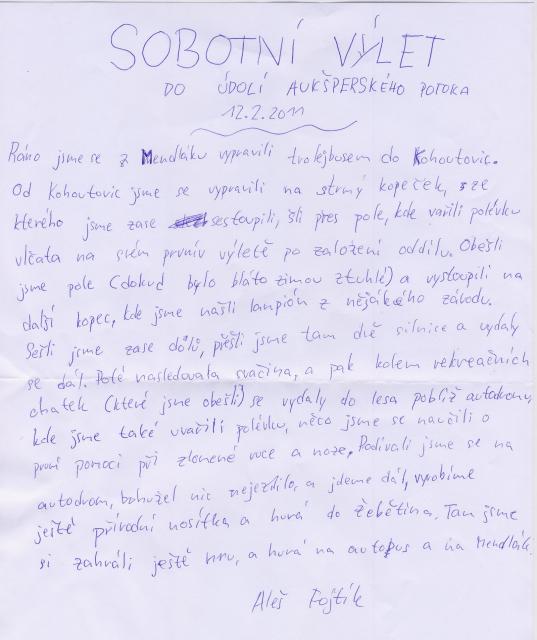 SOBOTNÍ VÝLET
DO ÚDOLÍ AUKŠPERSKÉHO POTOKA
12.2.2011
Ráno jsme se z Mendláku vypravili trolejbusem do Kohoutovic.
Od Kohoutovic jsme se vypravili na strmý kopeček, ze
kterého jsme zase sestoupili, šli přes pole, kde vařili polévku
vlčata na svém prvním výletě po založení oddílu. Obešli
jsme pole (dokud bylo bláto zimou ztuhlé) a vystoupili na
další kopec, kde jsme našli lampión z nějakého závodu.
Sešli jsme zase dólů, přešli jsme tam dvě silnice a vydaly
se dál. Poté následovala svačina, a pak kolem rekreačních
chatek (které jsme obešli) se vydaly do lesa poblíž autodromu,
kde jsme také uvařili polévku, něco jsme se naučili o
první pomoci při zlomené ruce a noze. Podívali jsme se na
autodrom, bohužel nic nejezdilo, a jdeme dál, vyrobíme
ještě přírodní nosítka a hurá do Žebětína. Tam jsme
si zahráli ještě hru, a hurá na autobus a na Mendlák.
Aleš Fojtík